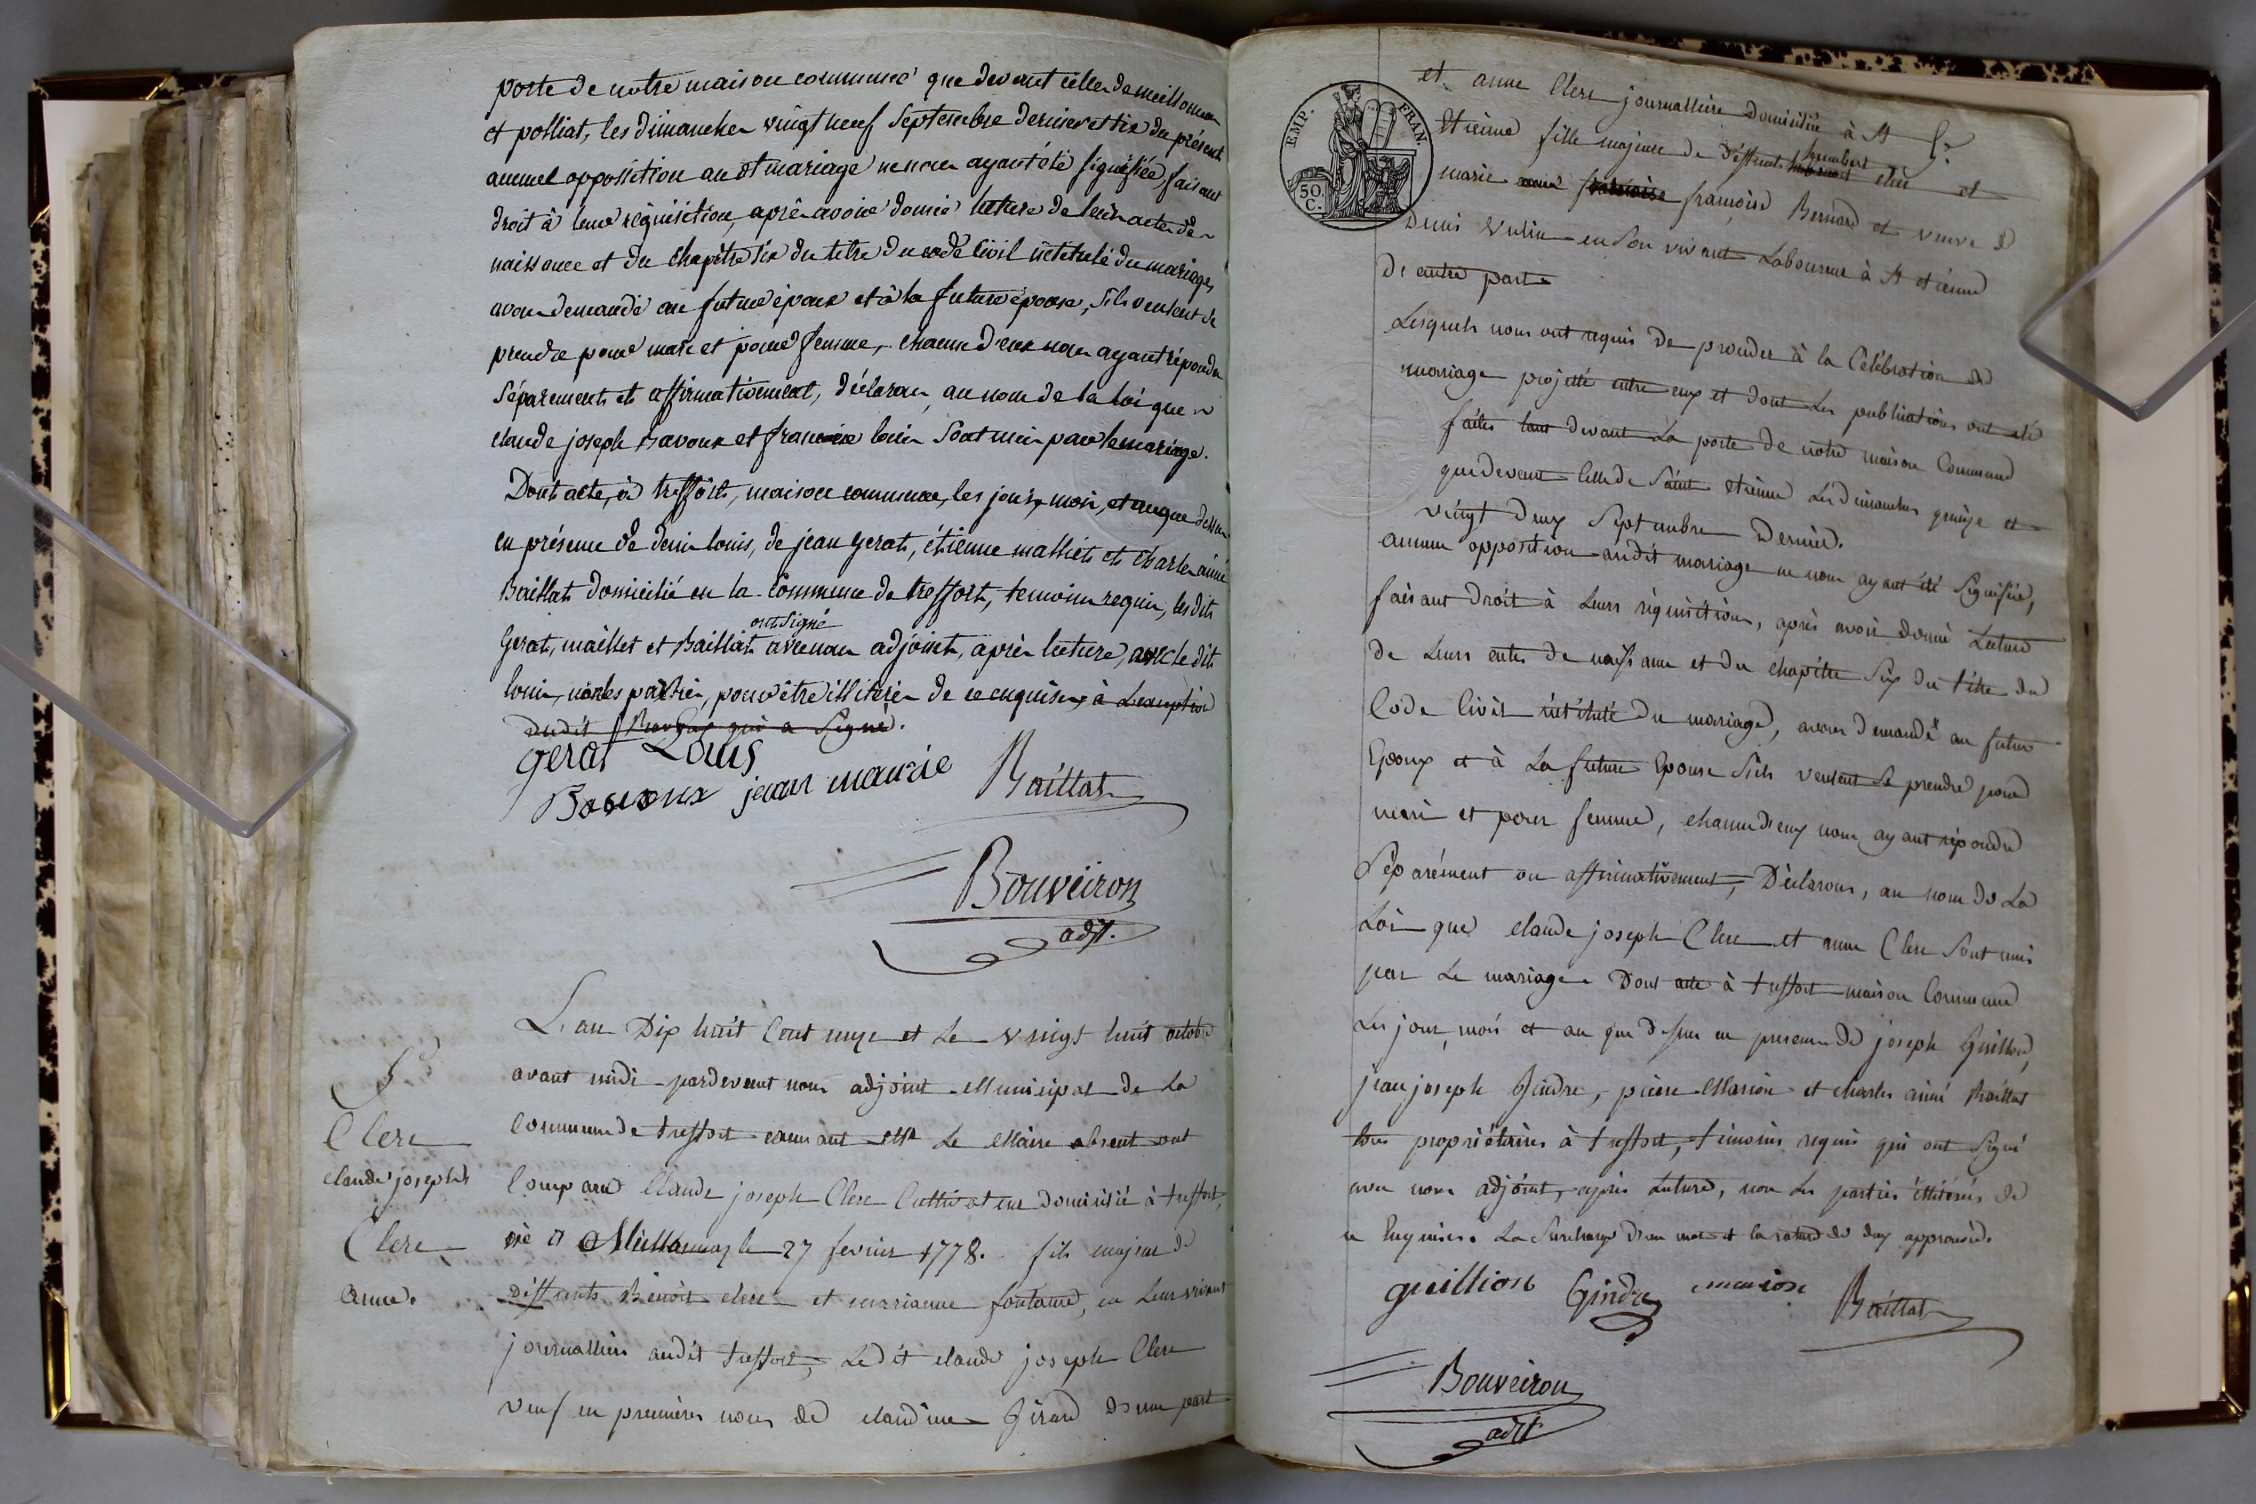 porte de notre maison commune que devant celle de meillonnas
et polliat, les dimanches vingt neuf Septembre dernier et six du présent
aucune opposition au dt mariage ne nous ayant été signifiée, faisant
droit à leur réquisition, après avoir donné lecture de leurs actes de
naissance et du Chapitre six du titre du code Civil intitulé du mariage,
avons demandé au futur époux et à la future épouse, s'ils veulent se
prendre pour mari et pour femme, chacun d'eux nous ayant répondu
séparément et affirmativement, déclarons, au nom de la loi que
claude joseph Bavoux et francoise louis sont unis par le mariage.
Dont acte, à treffort, maison commune, les jour, mois, et an que dessus
en présence de denis louis, de jean gerat, étienne maillet et charles aimé
Baillat domicilié en la Commune de treffort, temoins requis, les dits
Gerat, maillet et Baillat ont signé avec nous adjoint, après lecture, avec le dit
louis, non les parties, pour être illiterées de ce enquises à L'exception
dudit Bavoux qui a signé.
gerat Louis
Bavoux jean marie Baillat
Bouveiron
adjt.
L'an Dix huit Cent onze et Le vingt huit octobre
avant midi pardevant nous adjoint Municipal de La
Commune de treffort exerçant Mr Le Maire absent ont
Comparu Claude joseph Clerc Cultivateur domicilié à treffort,
né à Meillonnas le 27 fevrier 1778. fils majeur de
déffunts Benoit clerc et marianne fontaine, en Leur vivant
journalliers audit treffort, Le dit claude joseph Clerc
veuf en premières noces de claudine Girard d'une part
Clerc
claude joseph
Clerc
Anne.
EMP. FRAN.
50 C.
et anne Clerc journallière domiciliée à St
Etienne fille majeure de déffunts humbert clerc et
marie françoise Bernard et veuve de
Denis Vulin en son vivant Laboureur à St etienne
d'autre part
Lesquels nous ont requis de proceder à la Célébration du
mariage projetté entre eux et dont Les publications ont été
faites tant devant La porte de notre maison Commune
que devant Celle de Saint etienne Les dimanches quinze et
vingt deux Septembre Dernier.
aucune opposition audit mariage ne nous ayant été Signifiée,
faisant droit à Leurs réquisition, après avoir donné Lecture
de Leurs actes de naissance et du chapitre Six du titre du
Code Civil intitulé du mariage, avons demandé au futur
Epoux et à La future Epouse S'ils veulent Se prendre pour
mari et pour femme, chacun d'eux nous ayant répondu
Séparément ou affirmativement, Déclarons, au nom de La
Loi que claude joseph Clerc et anne Clerc Sont unis
par Le mariage. Dont acte à treffort maison Commune
Les jour, mois et an que dessus en presence de joseph Guillon,
jean joseph Gindre, pierre Marion et charles aimé Baillat
tous propriétaires à treffort, temoins requis qui ont Signé
avec nous adjoint, après Lecture, non Les parties illitérées de
ce Enquises. La Surcharge d'un mot et la rature de deux approuvés.
guillion Gindre marion Baillat
Bouveiron
adjt